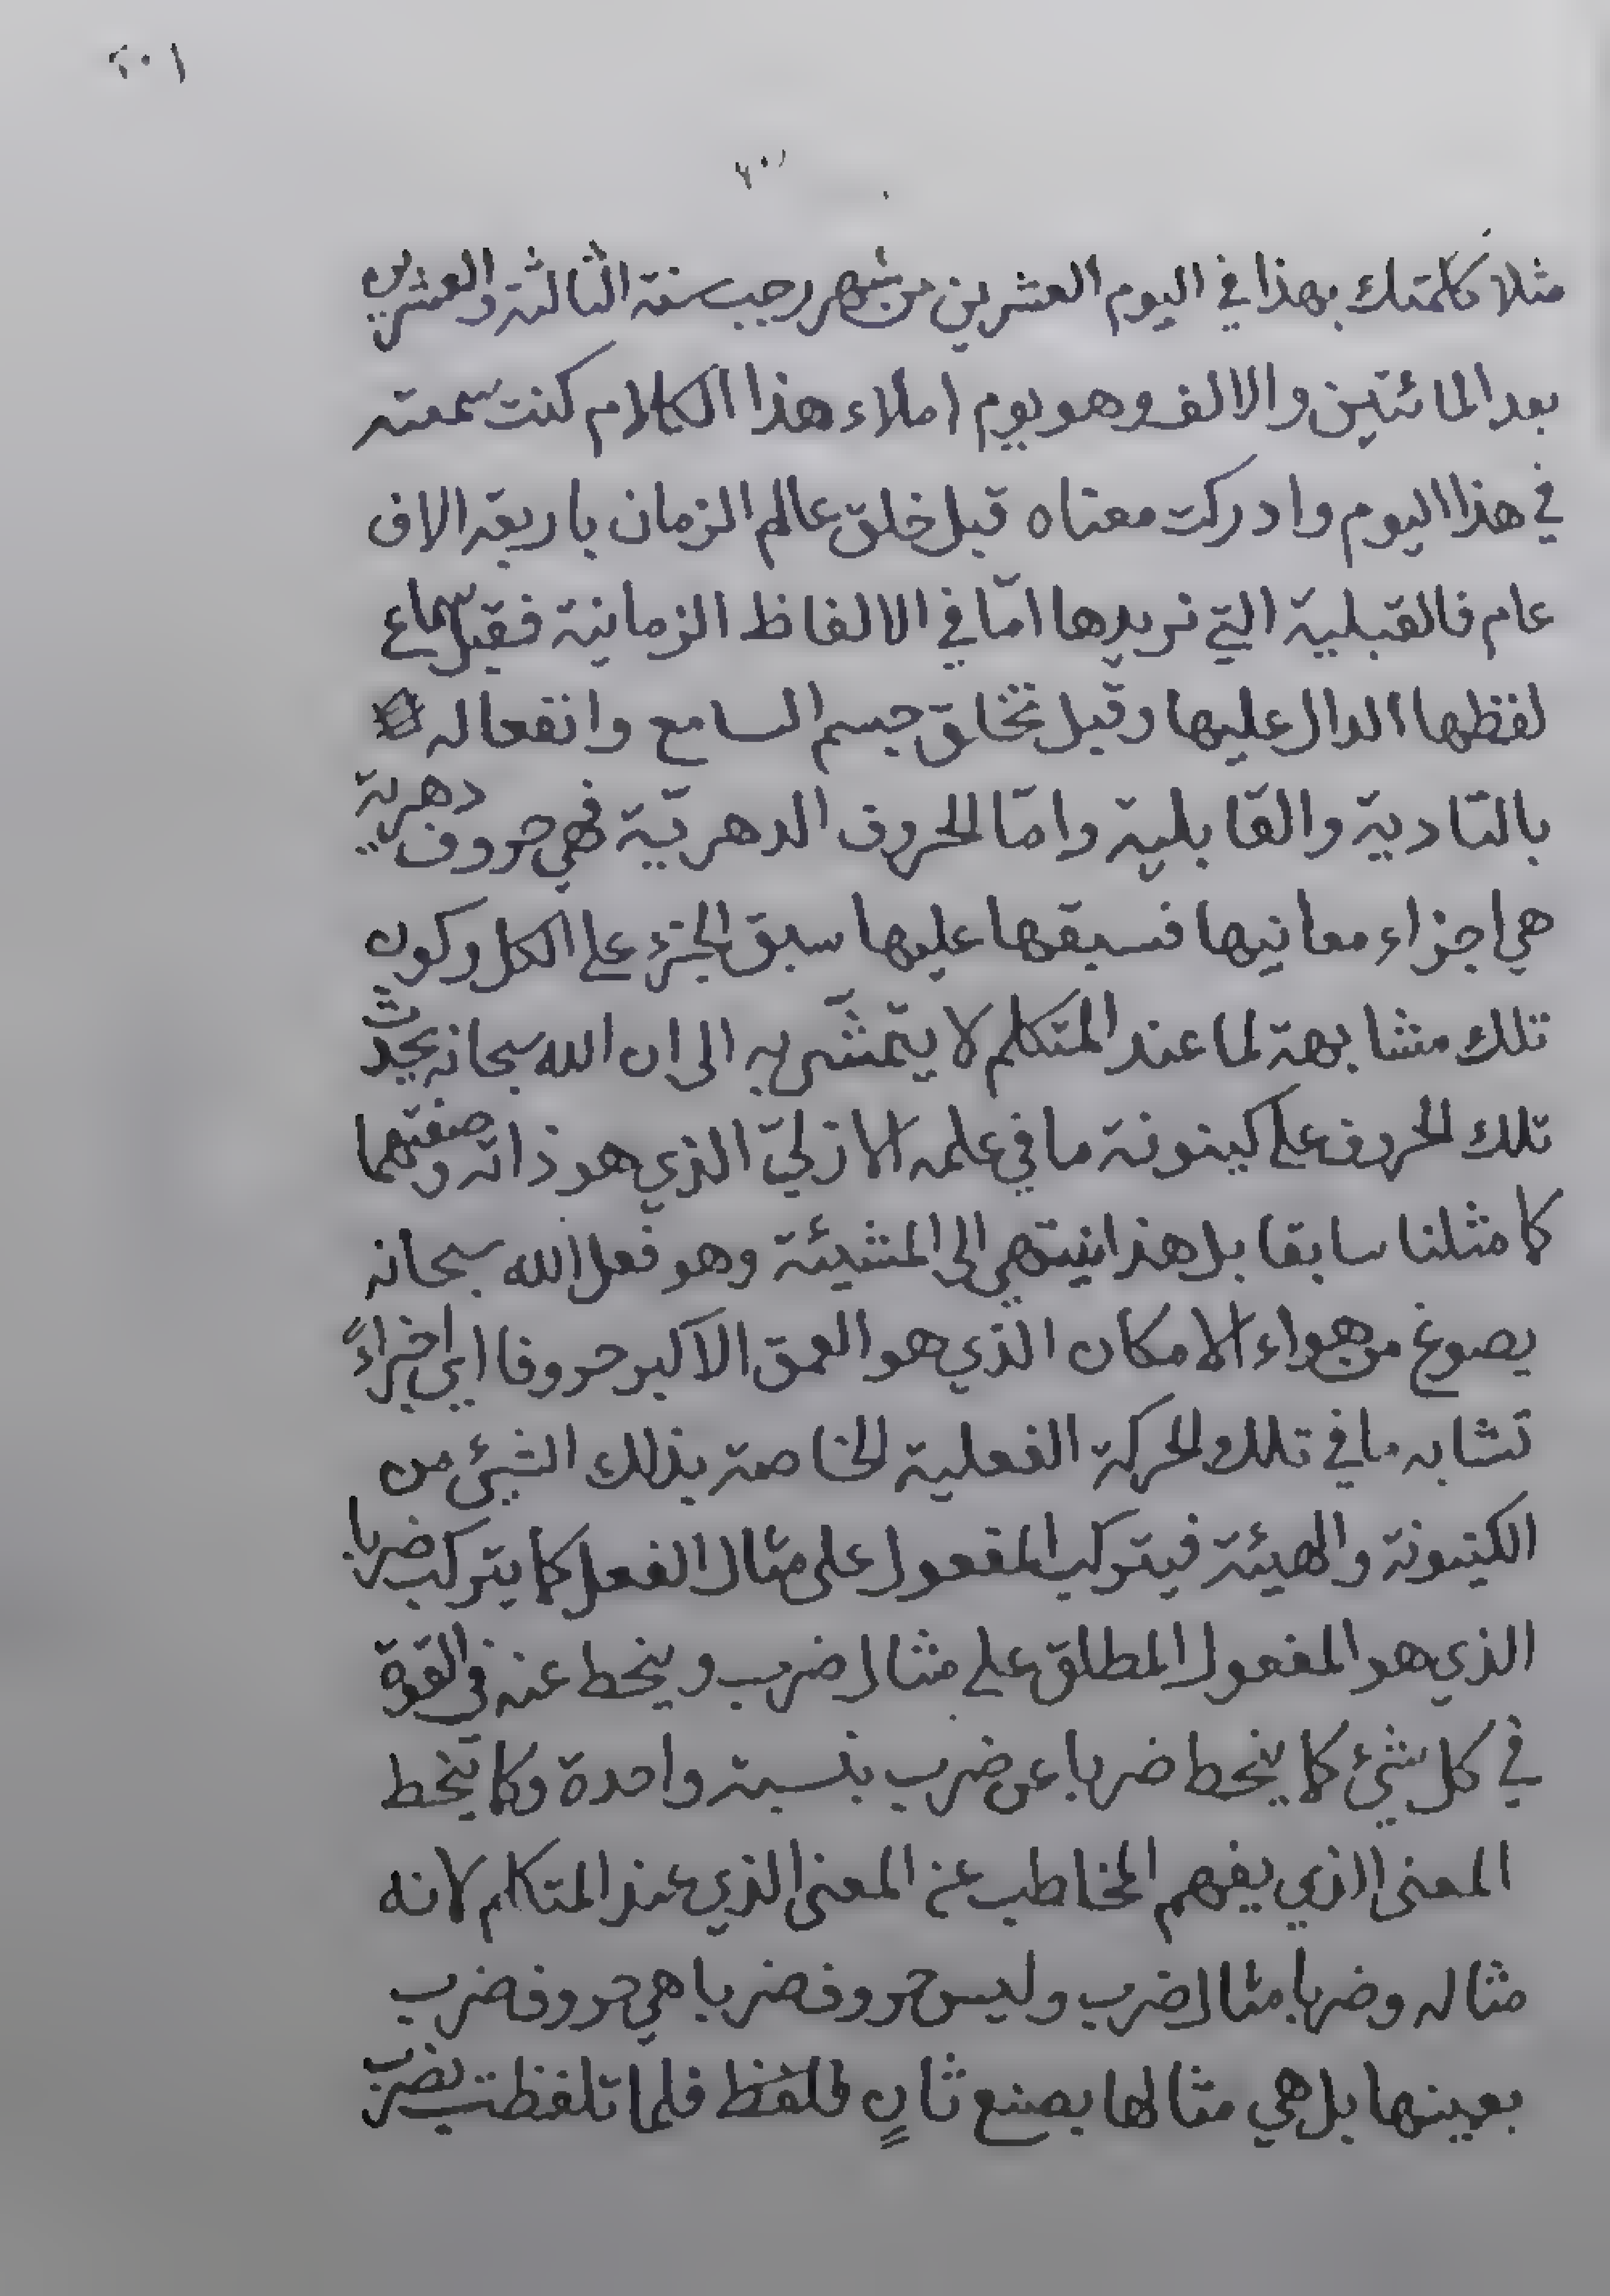 ٢٠١
مثلا كلمتك بهذا في اليوم العشرين من شهر رجب سنة الثالثة والعشرين
بعد المائتين والالف وهو يوم املاء هذا الكلام كنت سمعته
في هذا اليوم وادركت معناه قبل خلق عالم الزمان باربعة الاف
عام فالقبلية التي نريدها امّا في الالفاظ الزمانية فقبل سماع
لفظها الدال عليها وقبل تخلق جسم السامع وانفعاله
بالتادية والقابلية وامّا الحروف الدهريّة فهي حروف دهرية
هي اجزاء معانيها فسبقها عليها سبق الجزء على الكل وكون
تلك مشابهة لما عند المتكلم لا يتمشّى به الى ان الله سبحانه يحدث
تلك الحروف على كينونة ما في علمه الازليّ الذي هو ذاته وصفتهما
كما مثلنا سابقا بل هذا ينتهي الى المشيئة وهو فعل الله سبحانه
يصوغ من هواء الامكان الذي هو العمق الاكبر حروفا اي اجزاءً
تشابه ما في تلك الحركة الفعلية الخاصة بذلك الشيء من
الكينونة والهيئة فيتركب المفعول على مثال الفعل كما يتركب ضربا
الذي هو المفعول المطلق على مثال ضرب وينحط عنه في القوة
في كل شيء كما ينحط ضربا عن ضرب بنسبة واحدة وكما ينحط
المعنى الذي يفهم المخاطب عن المعنى الذي عند المتكلم لانه
مثاله وضربا مثال ضرب وليس حروف ضربا هي حروف ضرب
بعينها بل هي مثالها بصنع ثانٍ للفظ فلما تلفظت بضرب